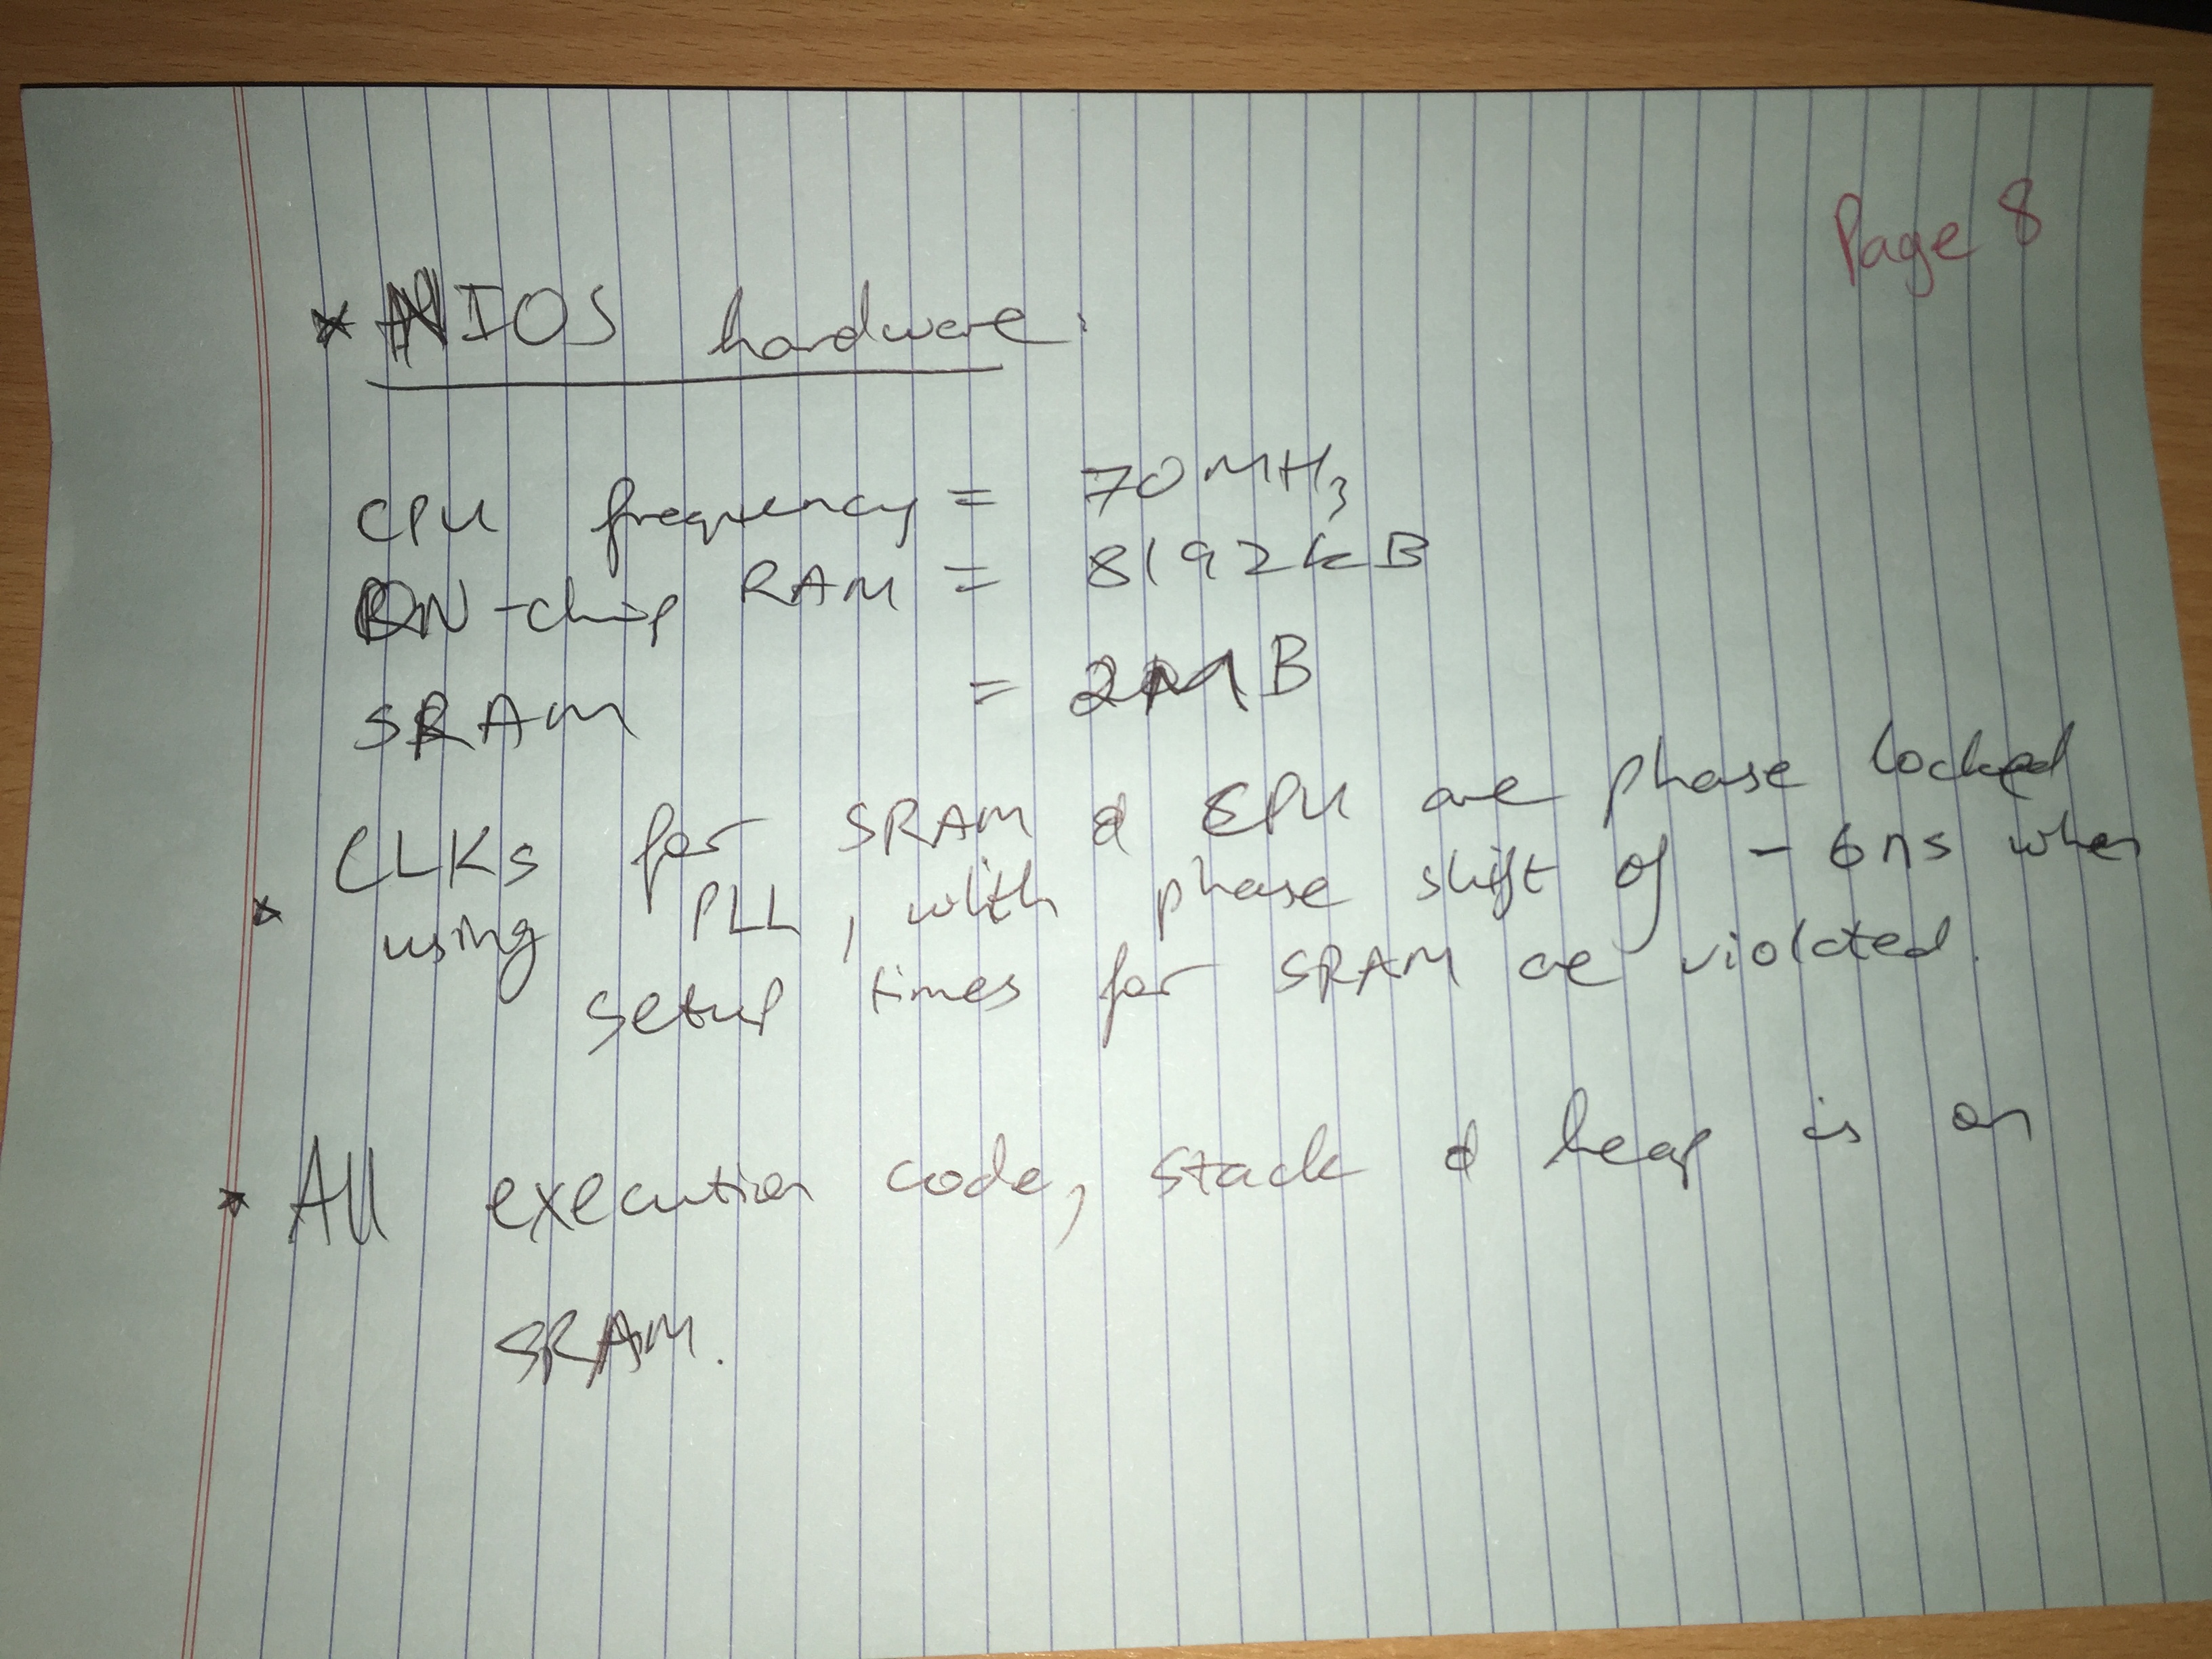 Page 8
* NIOS hardware:
CPU frequency = 70 MHz
ON-chip RAM = 8192kB
SRAM = 2MB
* CLKs for SRAM & CPU are phase locked
using PLL, with phase shift of -6ns when
setup times for SRAM are violated.
* All execution code, stack & heap is on
SRAM.